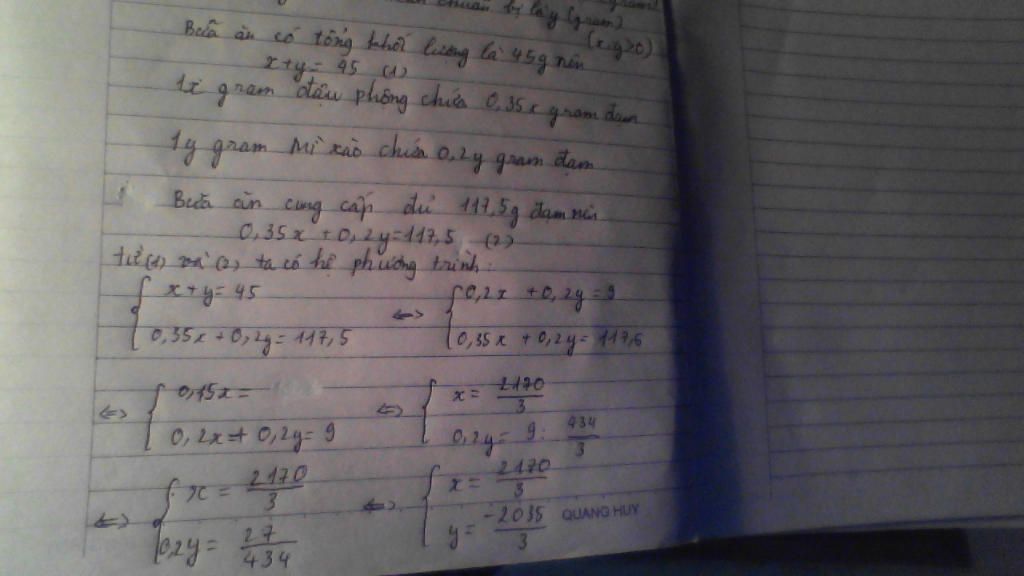 chuẩn bị là y (gram)
(x, y>0)
Bữa ăn có tổng khối lượng là 45g nên
x+y= 45 (1)
1x gram đậu phộng chứa 0,35x gram đạm
1y gram Mì xào chứa 0,2y gram đạm
Bữa ăn cung cấp đủ 117,5g đạm nên
0,35x + 0,2y=117,5 (2)
từ (1) và (2) ta có hệ phương trình:
x+y= 45 <=> 0,2x + 0,2y = 9
0,35x + 0,2y = 117,5 0,35x + 0,2y = 117,5
<=> 0,15x = <=> x = 2170/3
0,2x + 0,2y = 9 0,2y = 9: 434/3
<=> x = 2170/3 <=> x = 2170/3
0,2y = 27/434 y = -2035/3
QUANG HUY